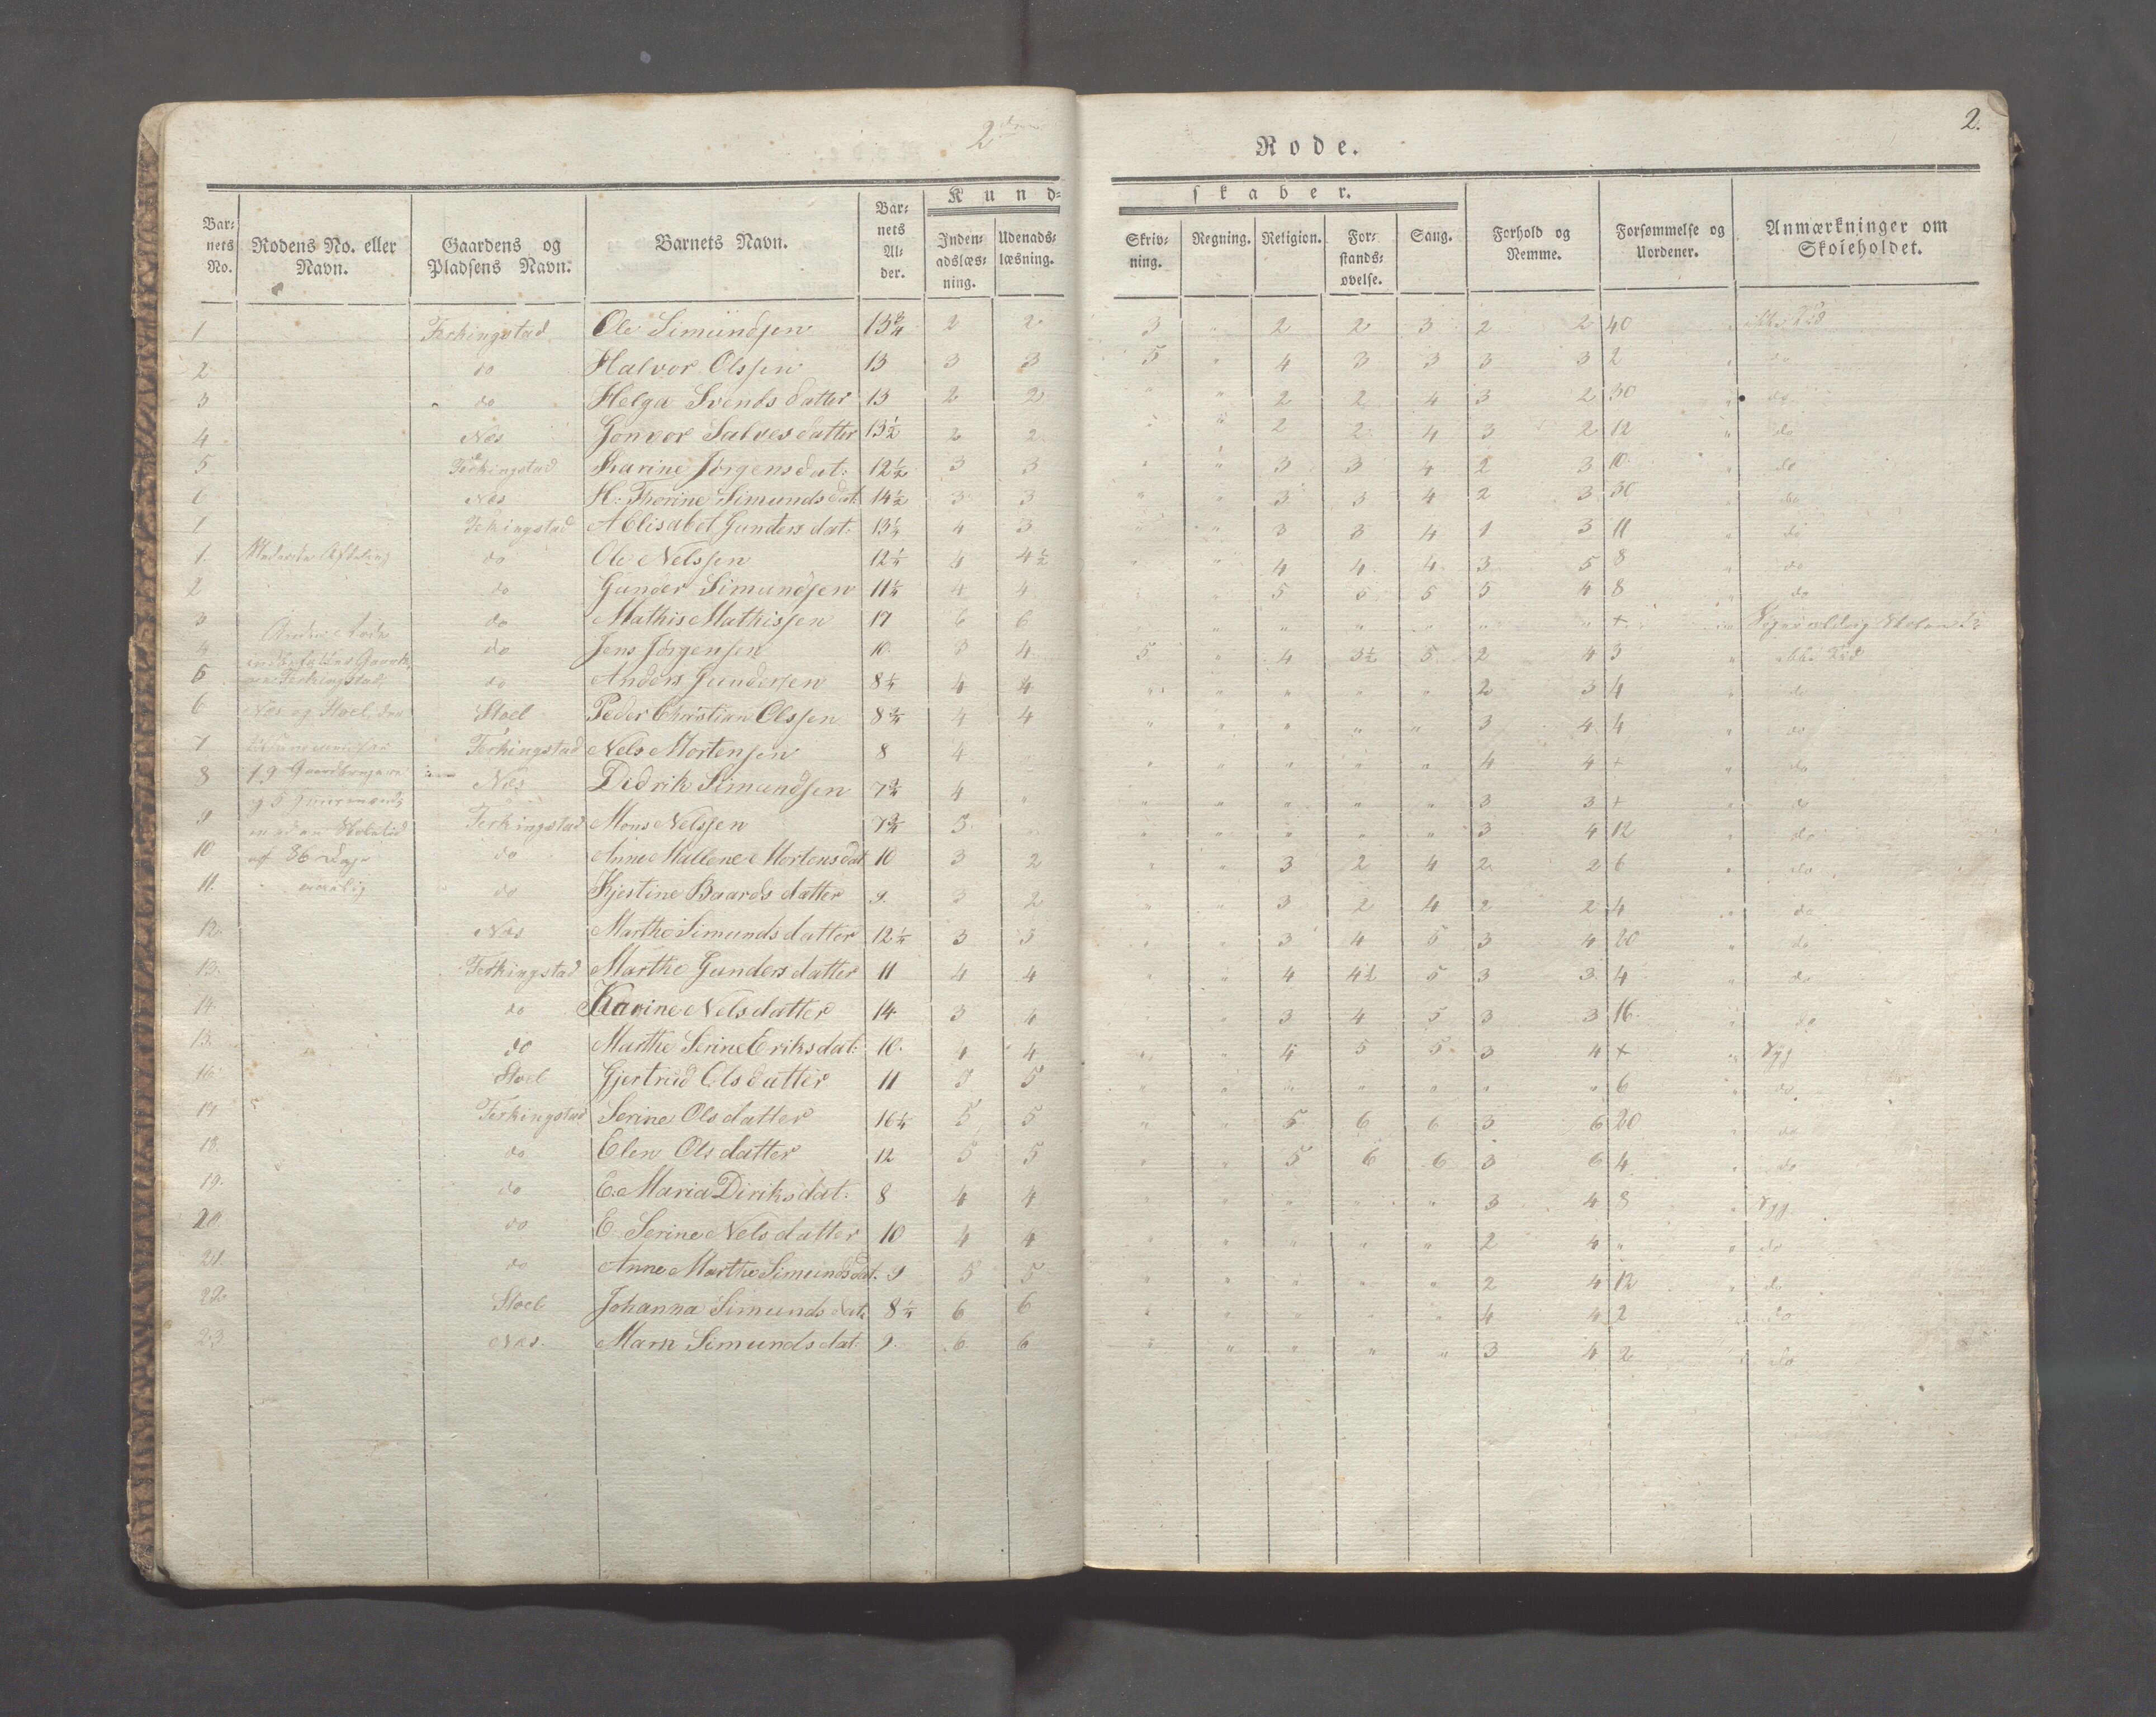 2den
Rode.
2.
Barnets No. | Rodens No. eller Navn. | Gaardens og Pladsens Navn. | Barnets Navn. | Barnets Alder. | Kundskaber. | Forhold og Nemme. | Forsømmelse og Uordener. | Anmærkninger om Skoleholdet.
Indenadslæsning. | Udenadslæsning. | Skrivning. | Regning. | Religion. | Forstandsøvelse. | Sang.
1 Ferkingstad Ole Simundsen 13 3/4 2 2 3 " 2 2 3 2 2 40
2 do Halvor Olssen 13 3 3 5 " 4 3 3 3 3 2 " do
3 do Helga Svendsdatter 13 2 2 " " 2 2 4 3 2 30 " do
4 Næs Gonvor Salvesdatter 13 1/2 2 2 " " 2 2 4 3 2 12 " do
5 Ferkingstad Karine Jørgensdat: 12 1/2 3 3 " " 3 3 4 2 3 10 " do
6 Næs H. Thorine Simundsdat 14 1/2 3 3 " " 3 3 4 2 3 30 " do
Ferkingstad A Elisabet Gundersdat: 13 1/4 4 3 " " 3 3 4 1 3 11 " do
1. Nederste Afdeling do Ole Nelssen 12 1/4 4 4 1/2 " " 4 4 4 3 5 8 " do
2 do Gunder Simundsen 11 1/4 4 4 " " 5 5 5 5 4 8 " do
3 do Mathis Mathissen 17 6 6 " " " " " " " +
4 do Jens Jørgensen 10 3 4 5 " 4 3 1/2 5 2 4 3
5 Ferkingstad do Anders Gundersen 8 1/4 4 4 " " " " " 2 3 4 " do
6 Næs og Stoel, Stoel Peder Christian Olssen 8 3/4 4 4 " " " " " 3 4 4 " do
7 Ferkingstad Nels Mortensen 8 4 " " " " " " 4 4 + " do
8 19 Gaardbrugere Næs Didrik Simundsen 7 3/4 4 " " " " " " 3 3 + " do
9 Ferkingstad Mons Nelssen 7 3/4 5 " " " " " " 3 4 12 " do
10 af 36 Dage do Anne Mallene Mortensdat 10 3 2 " " 3 2 4 2 2 6 " do
11. do Kjestine Baardsdatter 9. 3 2 " " 3 2 4 2 2 4 " do
12. Næs Marthe Simundsdatter 12 1/4 3 5 " " 3 4 5 3 4 20 " do
13. Ferkingstad Marthe Gundersdatter 11 4 4 " " 4 4 1/2 5 3 3 4 " do
14. do Karine Nelsdatter 14 3 4 " " 3 4 5 3 3 16 " do
15. do Marthe Serine Eriksdat: 10. 4 4 " " 4 5 5 3 4 + " Syg
16 Stoel Gjertrud Olsdatter 11 5 5 " " " " " " " 6 " do
17 Ferkingstad Serine Olsdatter 16 1/4 5 5 " " 5 6 6 3 6 20 " do
18. do Elen Olsdatter 12 5 5 " " 5 6 6 3 6 4 " do
19. do E. Maria Diriksdat: 8 4 4 " " " " " 3 4 8 " Syg.
20 do E. Serine Nelsdatter 10 4 4 " " " " " 2 4 " " do
21. do Anne Marthe Simundsdat. 9 5 5 " " " " " 2 4 12 " do
22. Stoel Johanna Simundsdat 8 1/4 6 6 " " " " " 4 4 2 " do
23 Næs. Marn Simundsdat 9. 6 6 " " " " " 3 4 2 " do